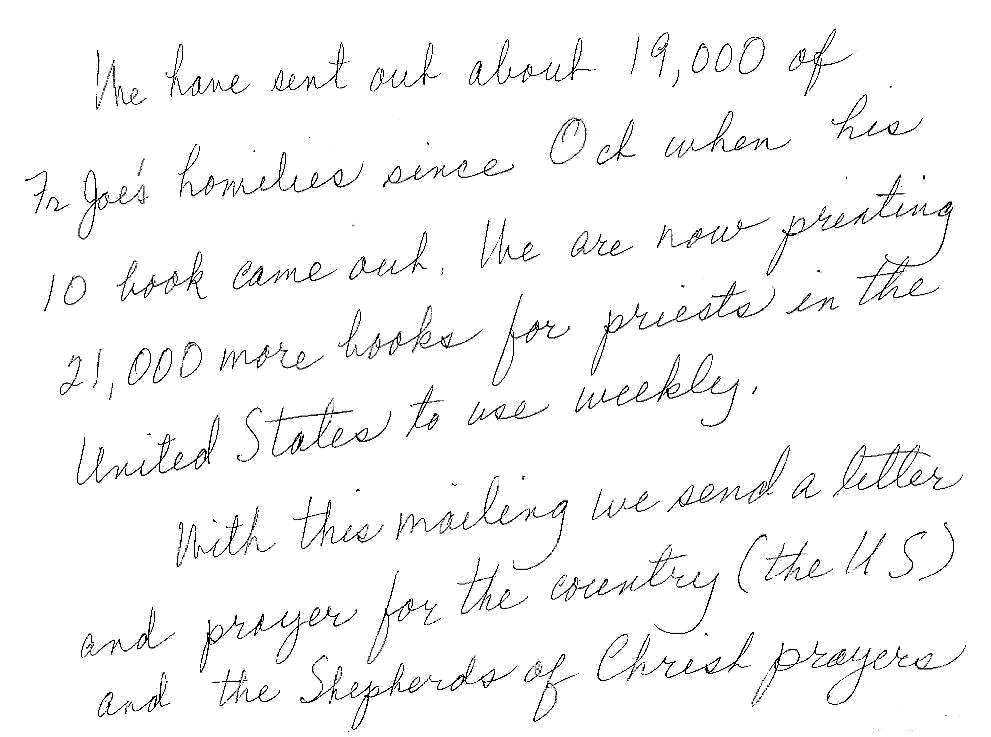 We have sent out about 19,000 of
Fr Joe's homilies since Oct when his
10 book came out. We are now printing
21,000 more books for priests in the
United States to use weekly.
With this mailing we send a letter
and prayer for the country (the U S)
and the Shepherds of Christ prayers